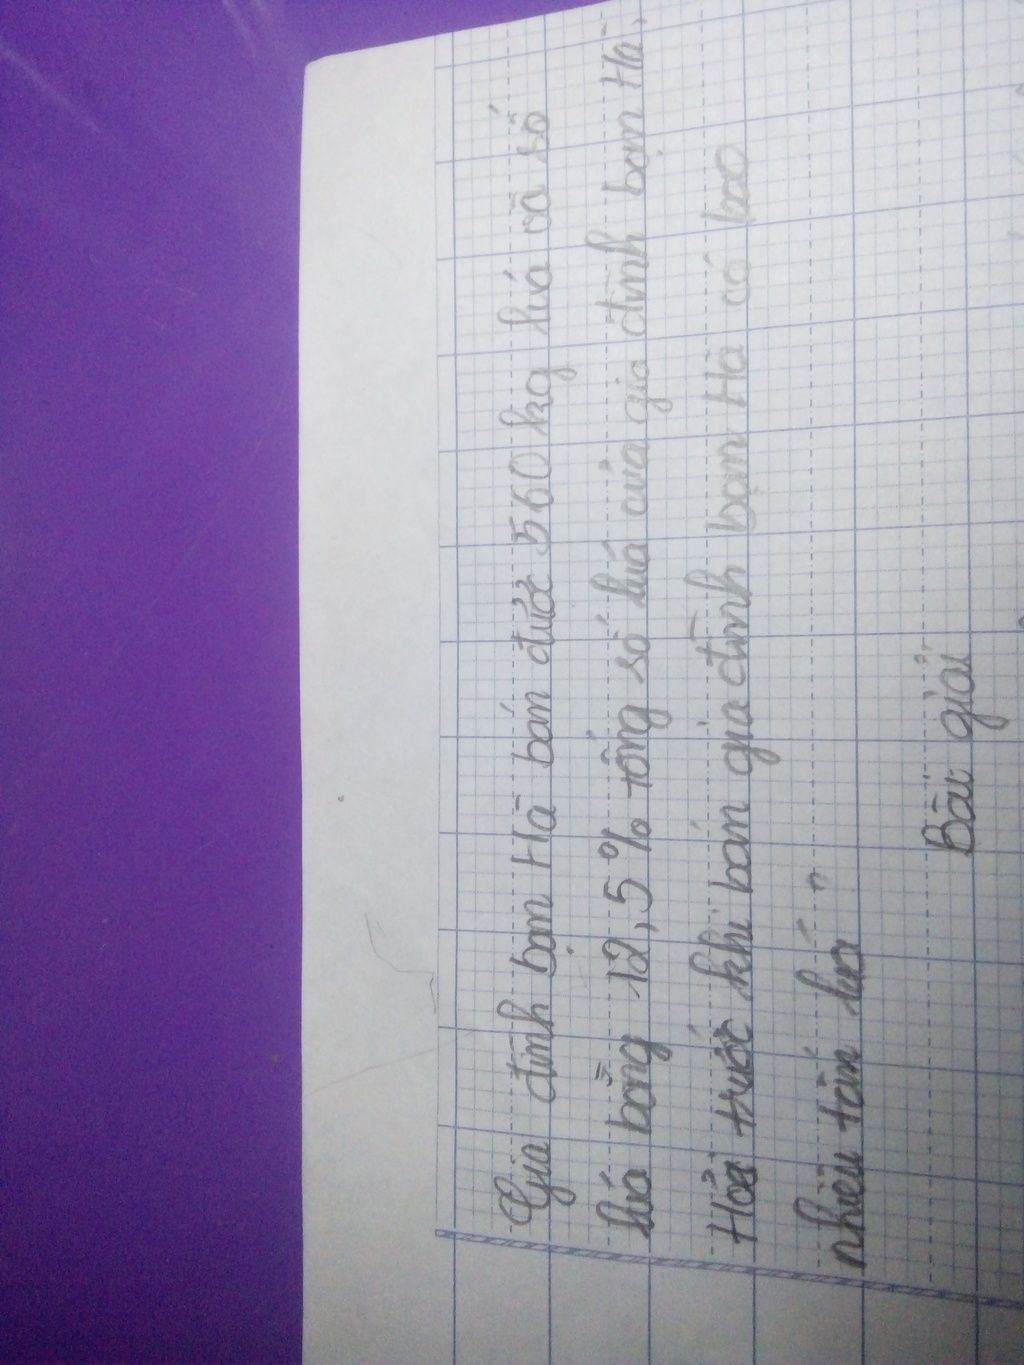 Gia đình bạn Hà bán được 560 kg lúa và số
lúa bằng 12,5% tổng số lúa của gia đình bạn Hà,
Hỏi trước khi bán gia đình bạn Hà có bao
nhiêu tấn lúa ?
Bài giải